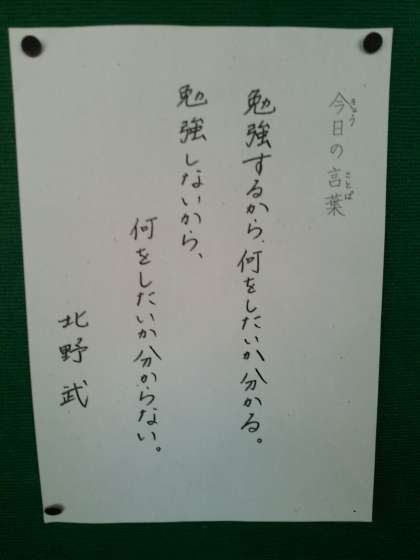 今日の言葉
きょう
ことば
勉強するから、何をしたいか分かる。
勉強しないから、
何をしたいか分からない。
北野武